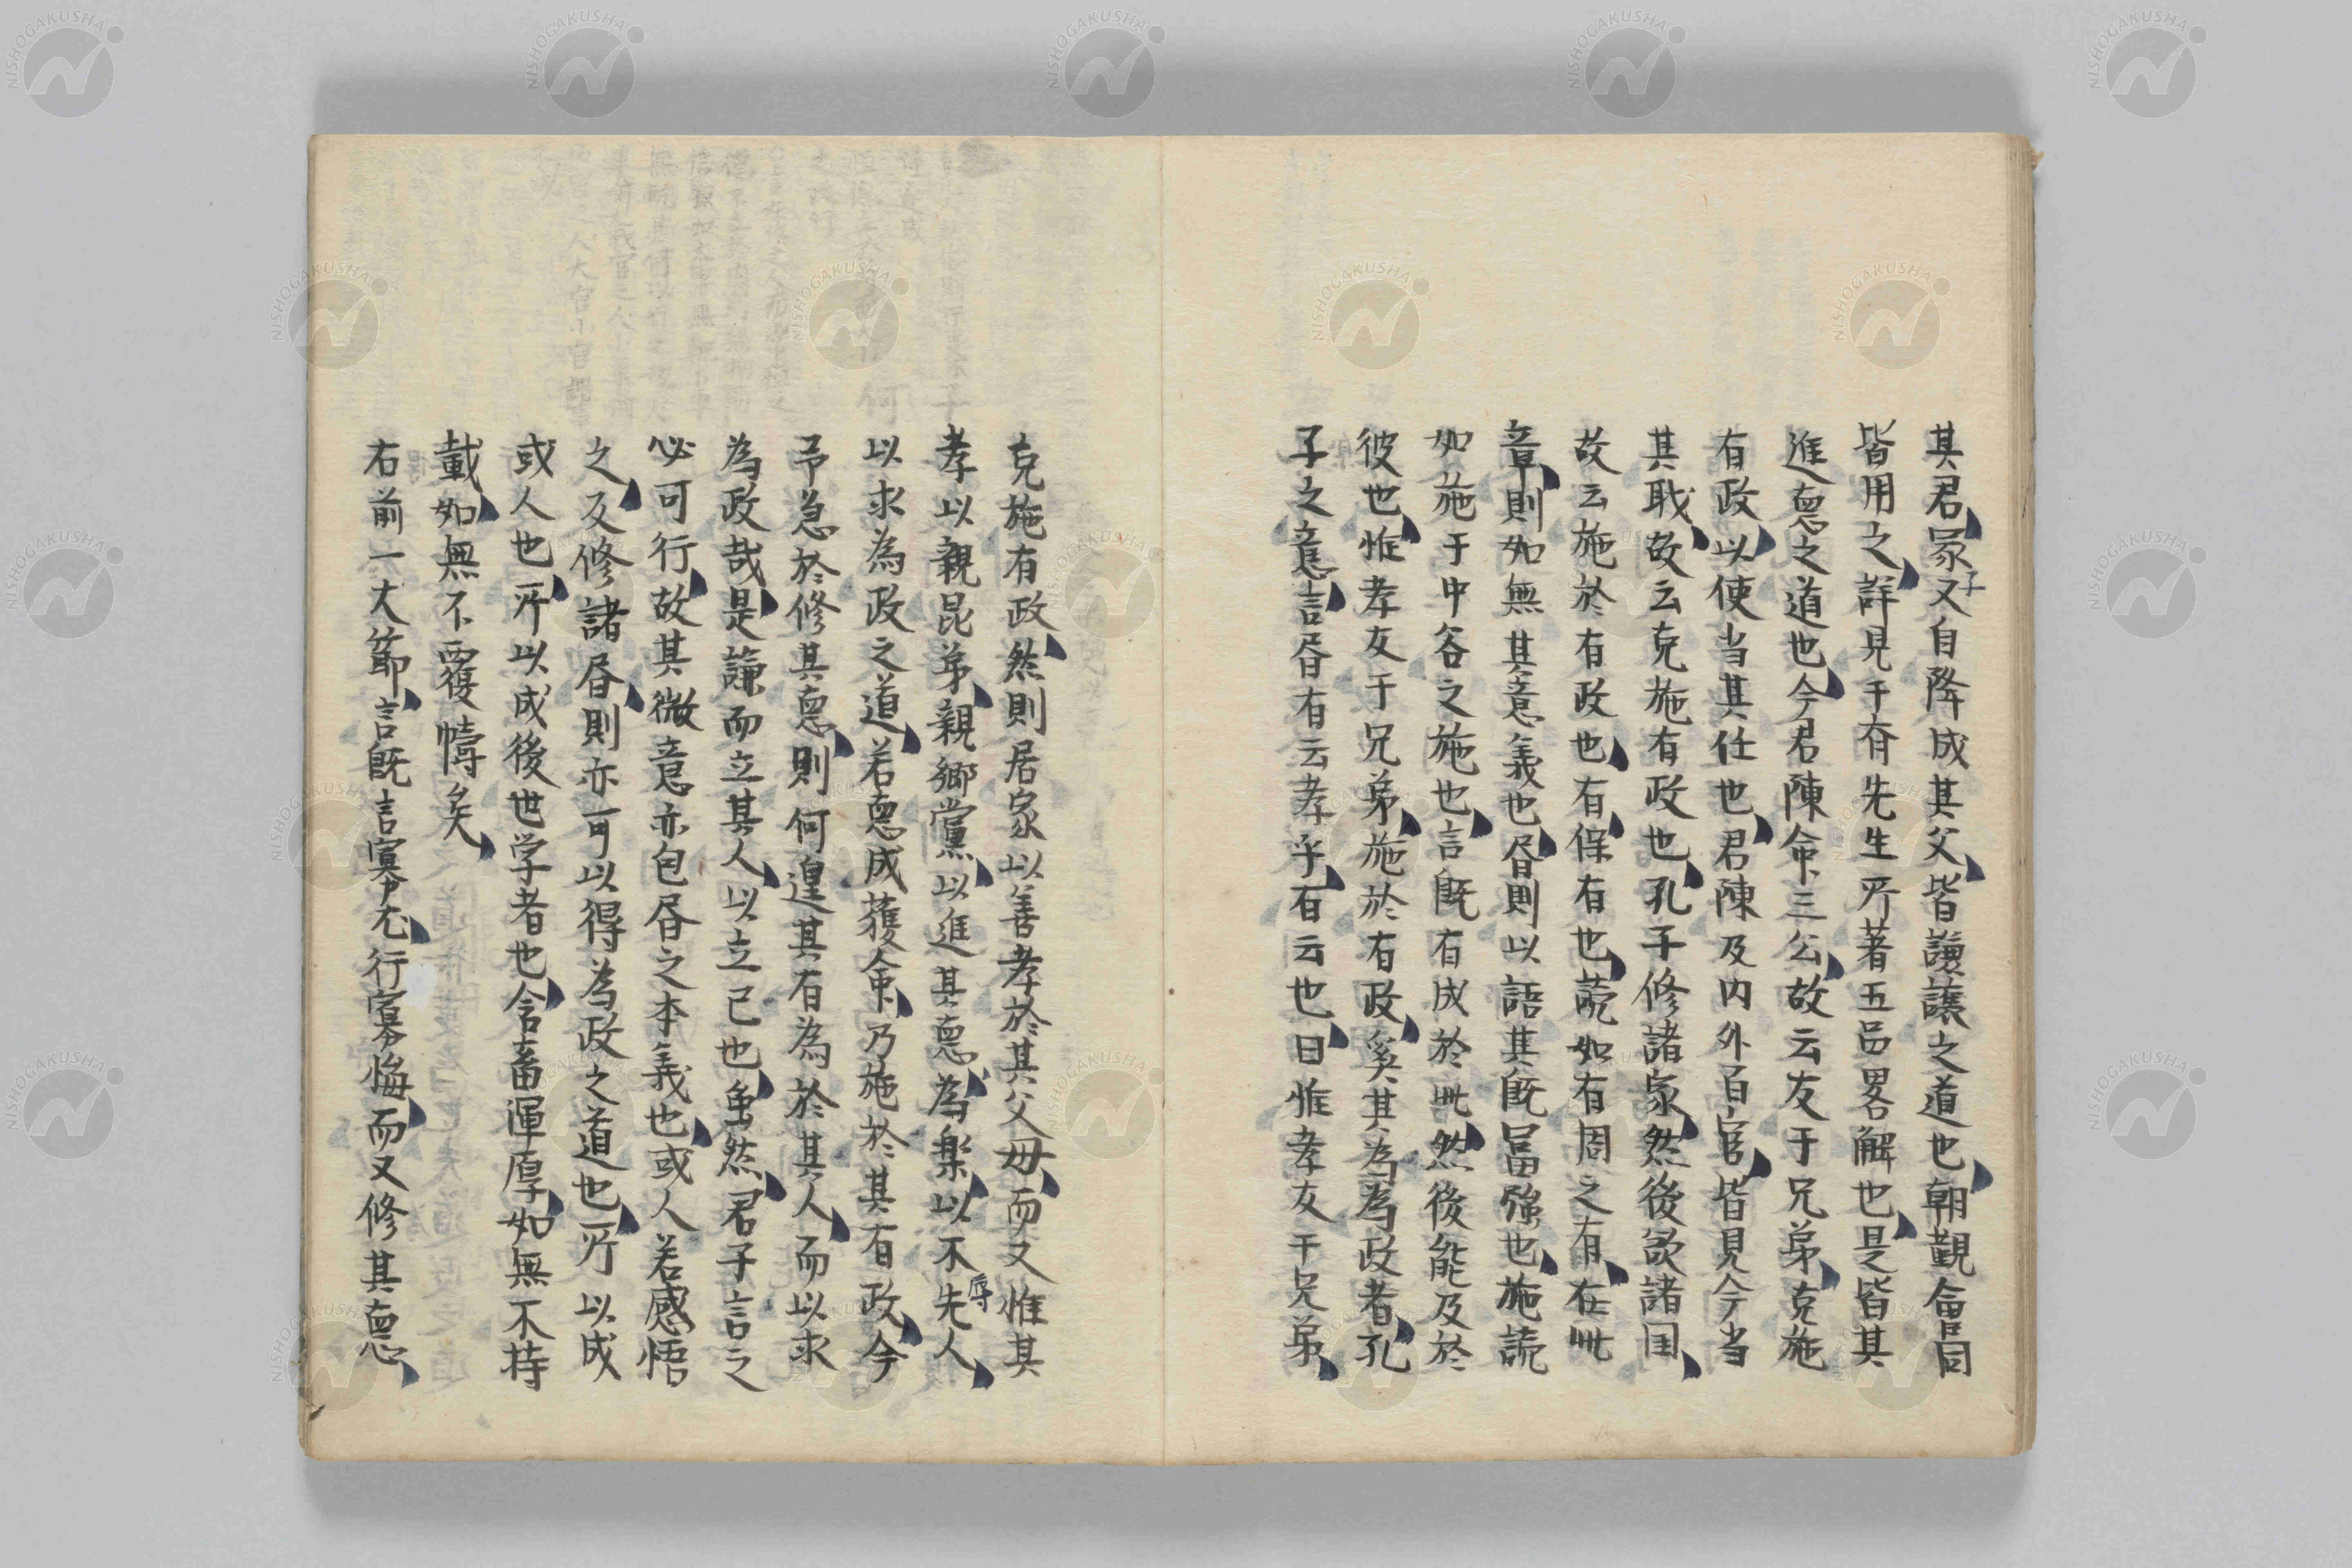 其君冢子又自降成其父皆謙讓之道也朝覲會同
皆用之詳見于有先生所著五邑畧解也是皆其
進悳之道也今君陳命三公故云友于兄弟克施
有政以使当其任也君陳及内外百官皆見今当
其職故云克施有政也孔子修諸家然後欲諸国
故云施於有政也有保有也蔬如有周之有在此
章則如無其意義也昏則以語其既冨強也施読
如施于中谷之施也言既有成於此然後能及於
彼也惟孝友于兄弟施於有政奚其為為政者孔
子之意言昏有云孝乎有云也曰惟孝友于兄弟
克施有政然則居家以善孝於其父母而又惟其
孝以親昆弟親郷黨以進其悳為楽以不辱先人
以求為政之道若悳成獲命乃施於其有政今
予急於修其悳則何遑其有為於其人而以求
為政哉是謙而立其人以立己也虽然君子言之
必可行故其微意亦包昏之本義也或人若感悟
之反修諸昏則亦可以得為政之道也所以成
或人也所以成後世学者也含畜渾厚如無不持
載如無不覆幬矣
右前一大節言既言寡尤行寡悔而又修其悳